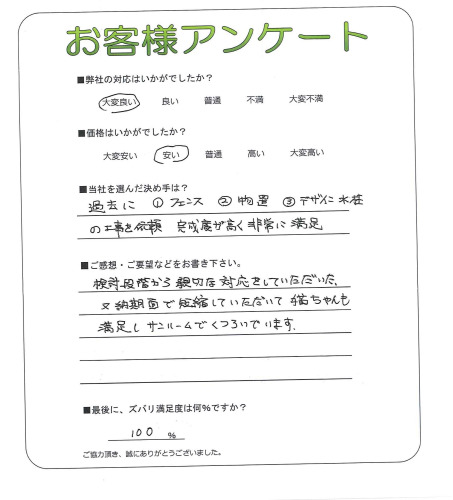 お客様アンケート
■弊社の対応はいかがでしたか？
大変良い 良い 普通 不満 大変不満
■価格はいかがでしたか？
大変安い 安い 普通 高い 大変高い
■当社を選んだ決め手は？
過去に ①フェンス ②物置 ③デザイン木柱
の工事を依頼 完成度が高く非常に満足
■ご感想・ご要望などをお書き下さい。
検討段階から親切な対応をしていただいた
又納期面で短縮していただいて猫ちゃんも
満足しサンルームでくつろいでいます.
■最後に、ズバリ満足度は何％ですか？
100 ％
ご協力頂き、誠にありがとうございました。